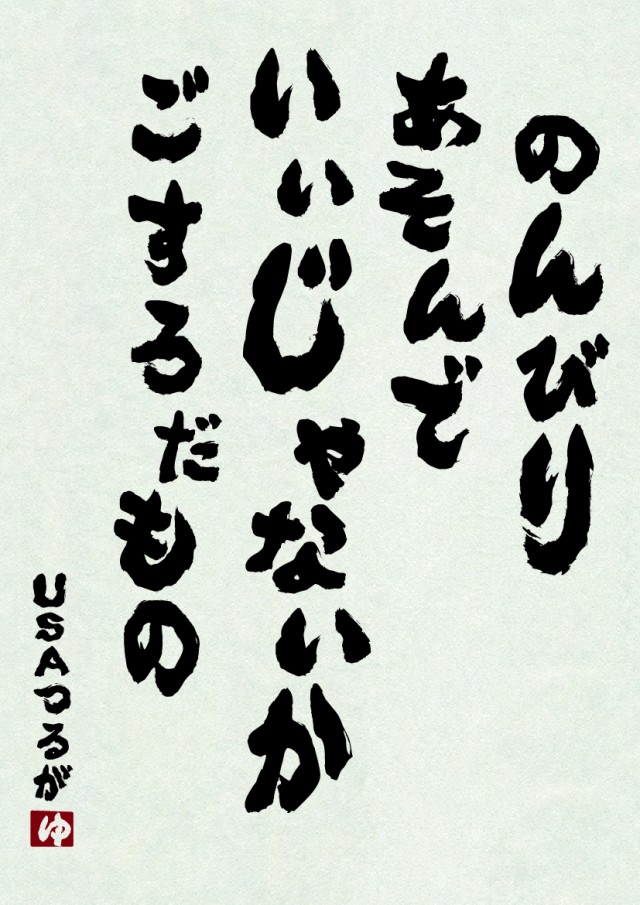 のんびり
あそんで
いいじゃないか
ごすろだもの
USAつるが
ゆ